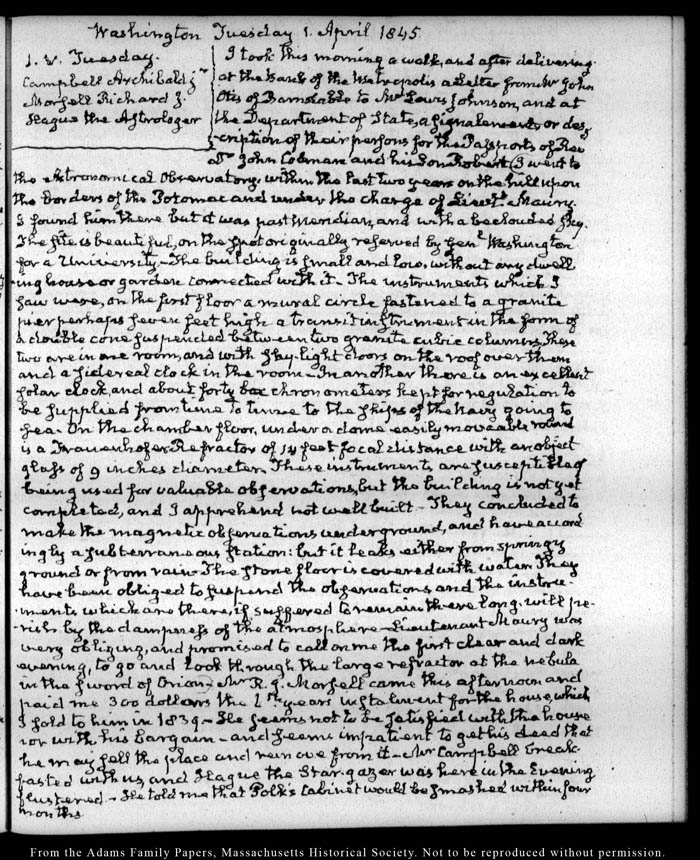 Washington Tuesday 1. April 1845.
1. V. Tuesday.
Campbell Archibald Jr
Morsell Richard J.
Hague the Astrologer
I took this morning a walk, and after delivering
at the bank of the Metropolis a Letter from Mr John
Otis of Barnstable to Mr Lewis Johnson, and at
the Department of State, a signalement, or des-
cription of their persons for the Passports of Rev
Dr John Codman and his Son Robert I went to
the Astronomical Observatory, within the last two years on the hill upon
the borders of the Potomac and under the charge of Lieut. Maury.
I found him there but it was past Meridian, and with a beclouded sky.
The site is beautiful, on the spot originally reserved by Genl Washington
for a University. The building is small and low, without any dwell
ing house or garden connected with it. The instruments which I
saw were, on the first floor a mural circle fastened to a granite
pier perhaps seven feet high a transit instrument in the form of
a double cone suspended between two granite cubic columns, These
two are in one room, and with sky-light doors on the roof over them
and a sidereal clock in the room. In another there is an excellent
solar clock, and about forty box chronometers kept for regulation to
be supplied from time to time to the ships of the Navy going to
sea. On the chamber floor, under a dome easily moveable round
is a Frauenhofer Refractor of 14 feet focal distance with an object
glass of 9 inches diameter. These instruments are susceptible of
being used for valuable observations, but the building is not yet
completed, and I apprehend not well built. They concluded to
make the magnetic observations underground, and have accord
ingly a subterraneous station: but it leaks either from springy
ground or from rain. The stone floor is covered with water. They
have been obliged to suspend the observations, and the instru-
ments which are there, if suffered to remain there long will pe-
rish by the dampness of the atmosphere. Lieutenant Maury was
very obliging, and promised to call on me the first clear and dark
evening, to go and look through the large refractor at the nebula
in the sword of Orion. Mr R. J. Morsell came this afternoon and
paid me 300 dollars the years instalment for the house, which
I sold to him in 1839. He seems not to be satisfied with the house
nor with his bargain and seems impatient to get his deed that
he may sell the place and remove from it. Mr Campbell break-
fasted with us, and Hague the Star-gazer was here in the Evening
flustered. He told me that Polk's Cabinet would be smashed within four
months.
From the Adams Family Papers, Massachusetts Historical Society. Not to be reproduced without permission.